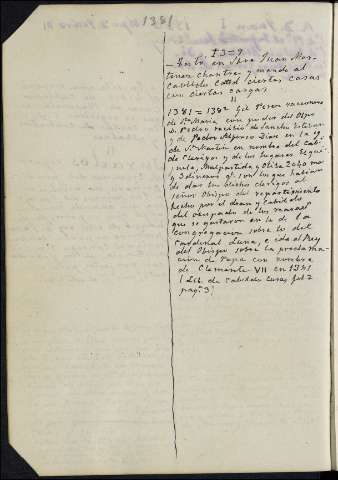 1381
1379
– Testo en Spre Juan Mar-
tinez chantre y manda al
Cavildo Cated. ciertas casas
con ciertas cargas
"
1381 = 1382 Gil Perez racionero
de Sta Maria con poder del Obpo
D. Pedro recibio de Sancho
y de Pedro Alfonso Dias en la igª
de Sn Martin en nombre del Cabil.
de Clerigos y de los lugares
Malpartida y Oliva 2060 ms
y 3 dineros qe son los que habian
de dar los dichos clerigos al
señor Obispo del repartimiento
hecho por el dean y Cabildo
del obispado de los
que se gastaron en la de la
congregacion sobre lo del
Cardenal Luna, e sda al Rey
del Obispo sobre la proclama-
cion de Papa con nombre
de Clemente VII en 1381
(Lib. de Cabildos Casas fol 2
pagª 3)